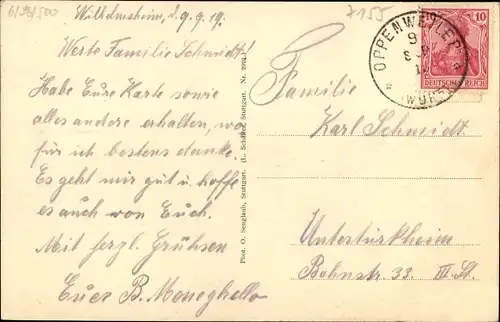 6/96/500
7155
Wilhelmsheim, d. 9.9.19.
Werte Familie Schmidt!
Habe Eure Karte sowie
alles andere erhalten, wo
für ich bestens danke.
Es geht mir gut u. hoffe
es auch von Euch.
Mit herzl. Grüssen
Euer B. Meneghello
Phot. O. Senglaub, Stuttgart. (L. Schaller, Stuttgart. Nr.
OPPENWEILER
(WÜRTT
10
DEUTSCHES REICH
Familie
Karl Schmidt.
Untertürkheim
Bahnstr. 33. III. St.